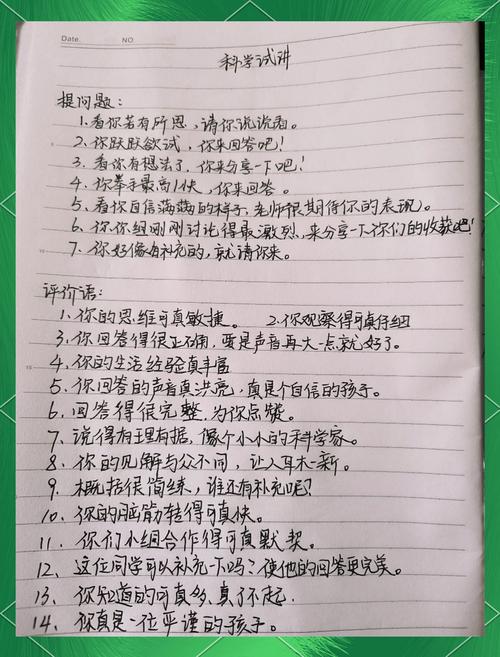 Date.  NO
科学试讲
提问题：
1. 看你若有所思，请你说说看。
2、你跃跃欲试，你来回答吧！
3、看你有想法了，你来分享一下吧！
4、你举手最高1快，你来回答。
5、看你自信满满的样子，老师很期待你的表现。
6、你们组刚刚讨论得最激烈，来分享一下你们的收获吧！
7、你好像有补充的，就请你来。
评价语：
1、你的思维可真敏捷。 2、你观察得可真仔细
3、你回答得很正确，要是声音再大一点就好了。
4、你的生活经验真丰富
5、你回答的声音真洪亮，真是个自信的孩子。
6、回答得很完整，为你点赞。
7、说得有理有据，像个小小的科学家。
8、你的见解与众不同，让人耳目一新。
9、概括很简练，谁还有补充呢？
10、你的脑筋转得可真快。
11、你们小组合作得可真默契。
12、这位同学可以补充一下吗？使他的回答更完美。
13、你知道的可真多，真了不起.
14、你真是一位严谨的孩子。